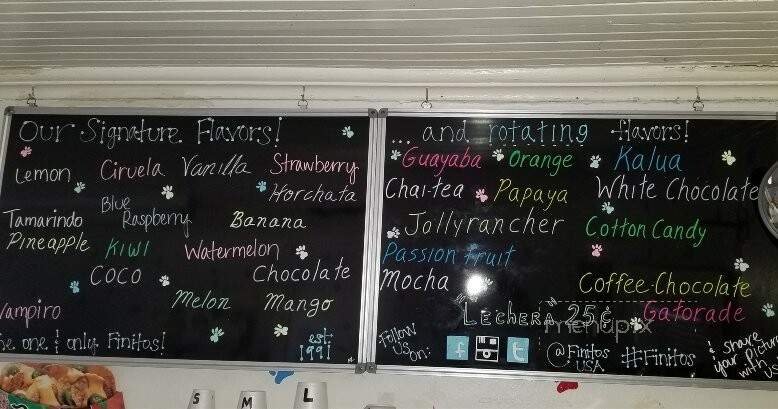 Our Signature Flavors!
Lemon Ciruela Vanilla Strawberry
Horchata
Blue
Raspberry
Tamarindo Banana
Pineapple Kiwi Watermelon
Coco Chocolate
Vampiro Melon Mango
one & only Finitos!
est.
1991
... and rotating flavors!
Guayaba Orange Kalua
Chai-tea Papaya White Chocolate
Jollyrancher Cotton Candy
Passion fruit
Mocha Coffee-Chocolate
"Lechera" 25¢ Gatorade
menupix
Follow
us
on:
f t
@Finitos
USA
#Finitos
& share
your Picture
with us
S M L